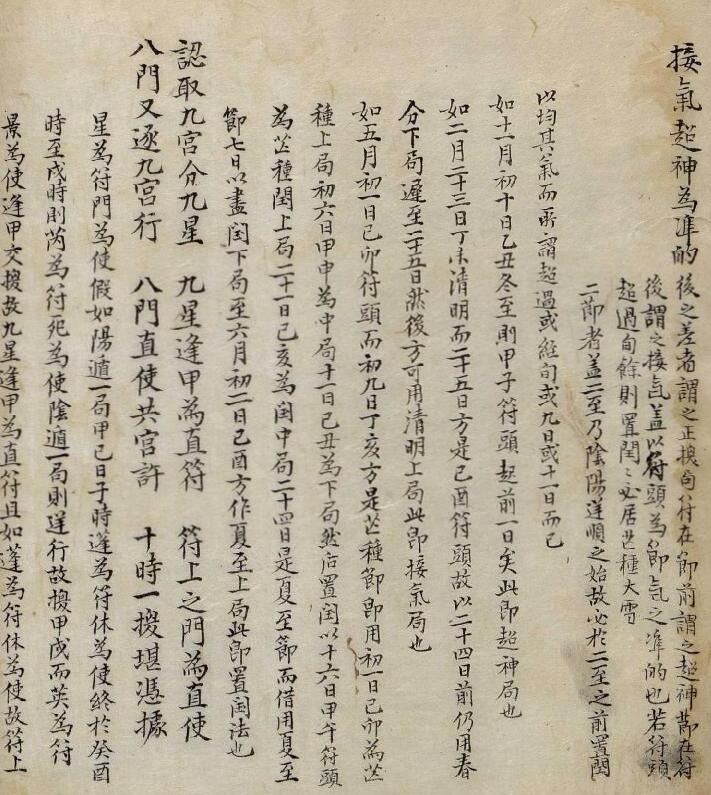 接氣超神為準的
後之差者謂之正授旬符在節前謂之超神節在符
後謂之接氣盖以符頭為節氣之準的也若符頭
超過旬餘則置閏〻必居芒種大雪
二節者盖二至乃陰陽逆順之始故必於二至之前置閏
以均其氣而所謂超過或經旬或九日或十一日而已
如十一月初十日乙丑冬至則甲子符頭起前一日矣此即超神局也
如二月二十三日丁未清明而二十五日方是己酉符頭故以二十四日前仍用春
分下局遲至二十五日然後方可用清明上局此即接氣局也
如五月初一日己卯符頭而初九日丁亥方是芒種節即用初一日己卯為芒
種上局初六日甲申為中局十一日己丑為下局然后置閏以十六日甲午符頭
為芒種閏上局二十一日己亥為閏中局二十四日是夏至節而借用夏至
節七日以盡閏下局至六月初二日己酉方作夏至上局此即置閏法也
認取九宮分九星 九星逢甲為直符 符上之門為直使
八門又逐九宮行 八門直使共宮許 十時一換堪憑據
星為符門為使假如陽遁一局甲己日子時蓬為符休為使終於癸酉
時至戌時則芮為符死為使陰遁一局則逆行故換甲戌而英為符
景為使逢甲交換故九星逢甲為直符且如蓬為符休為使故符上